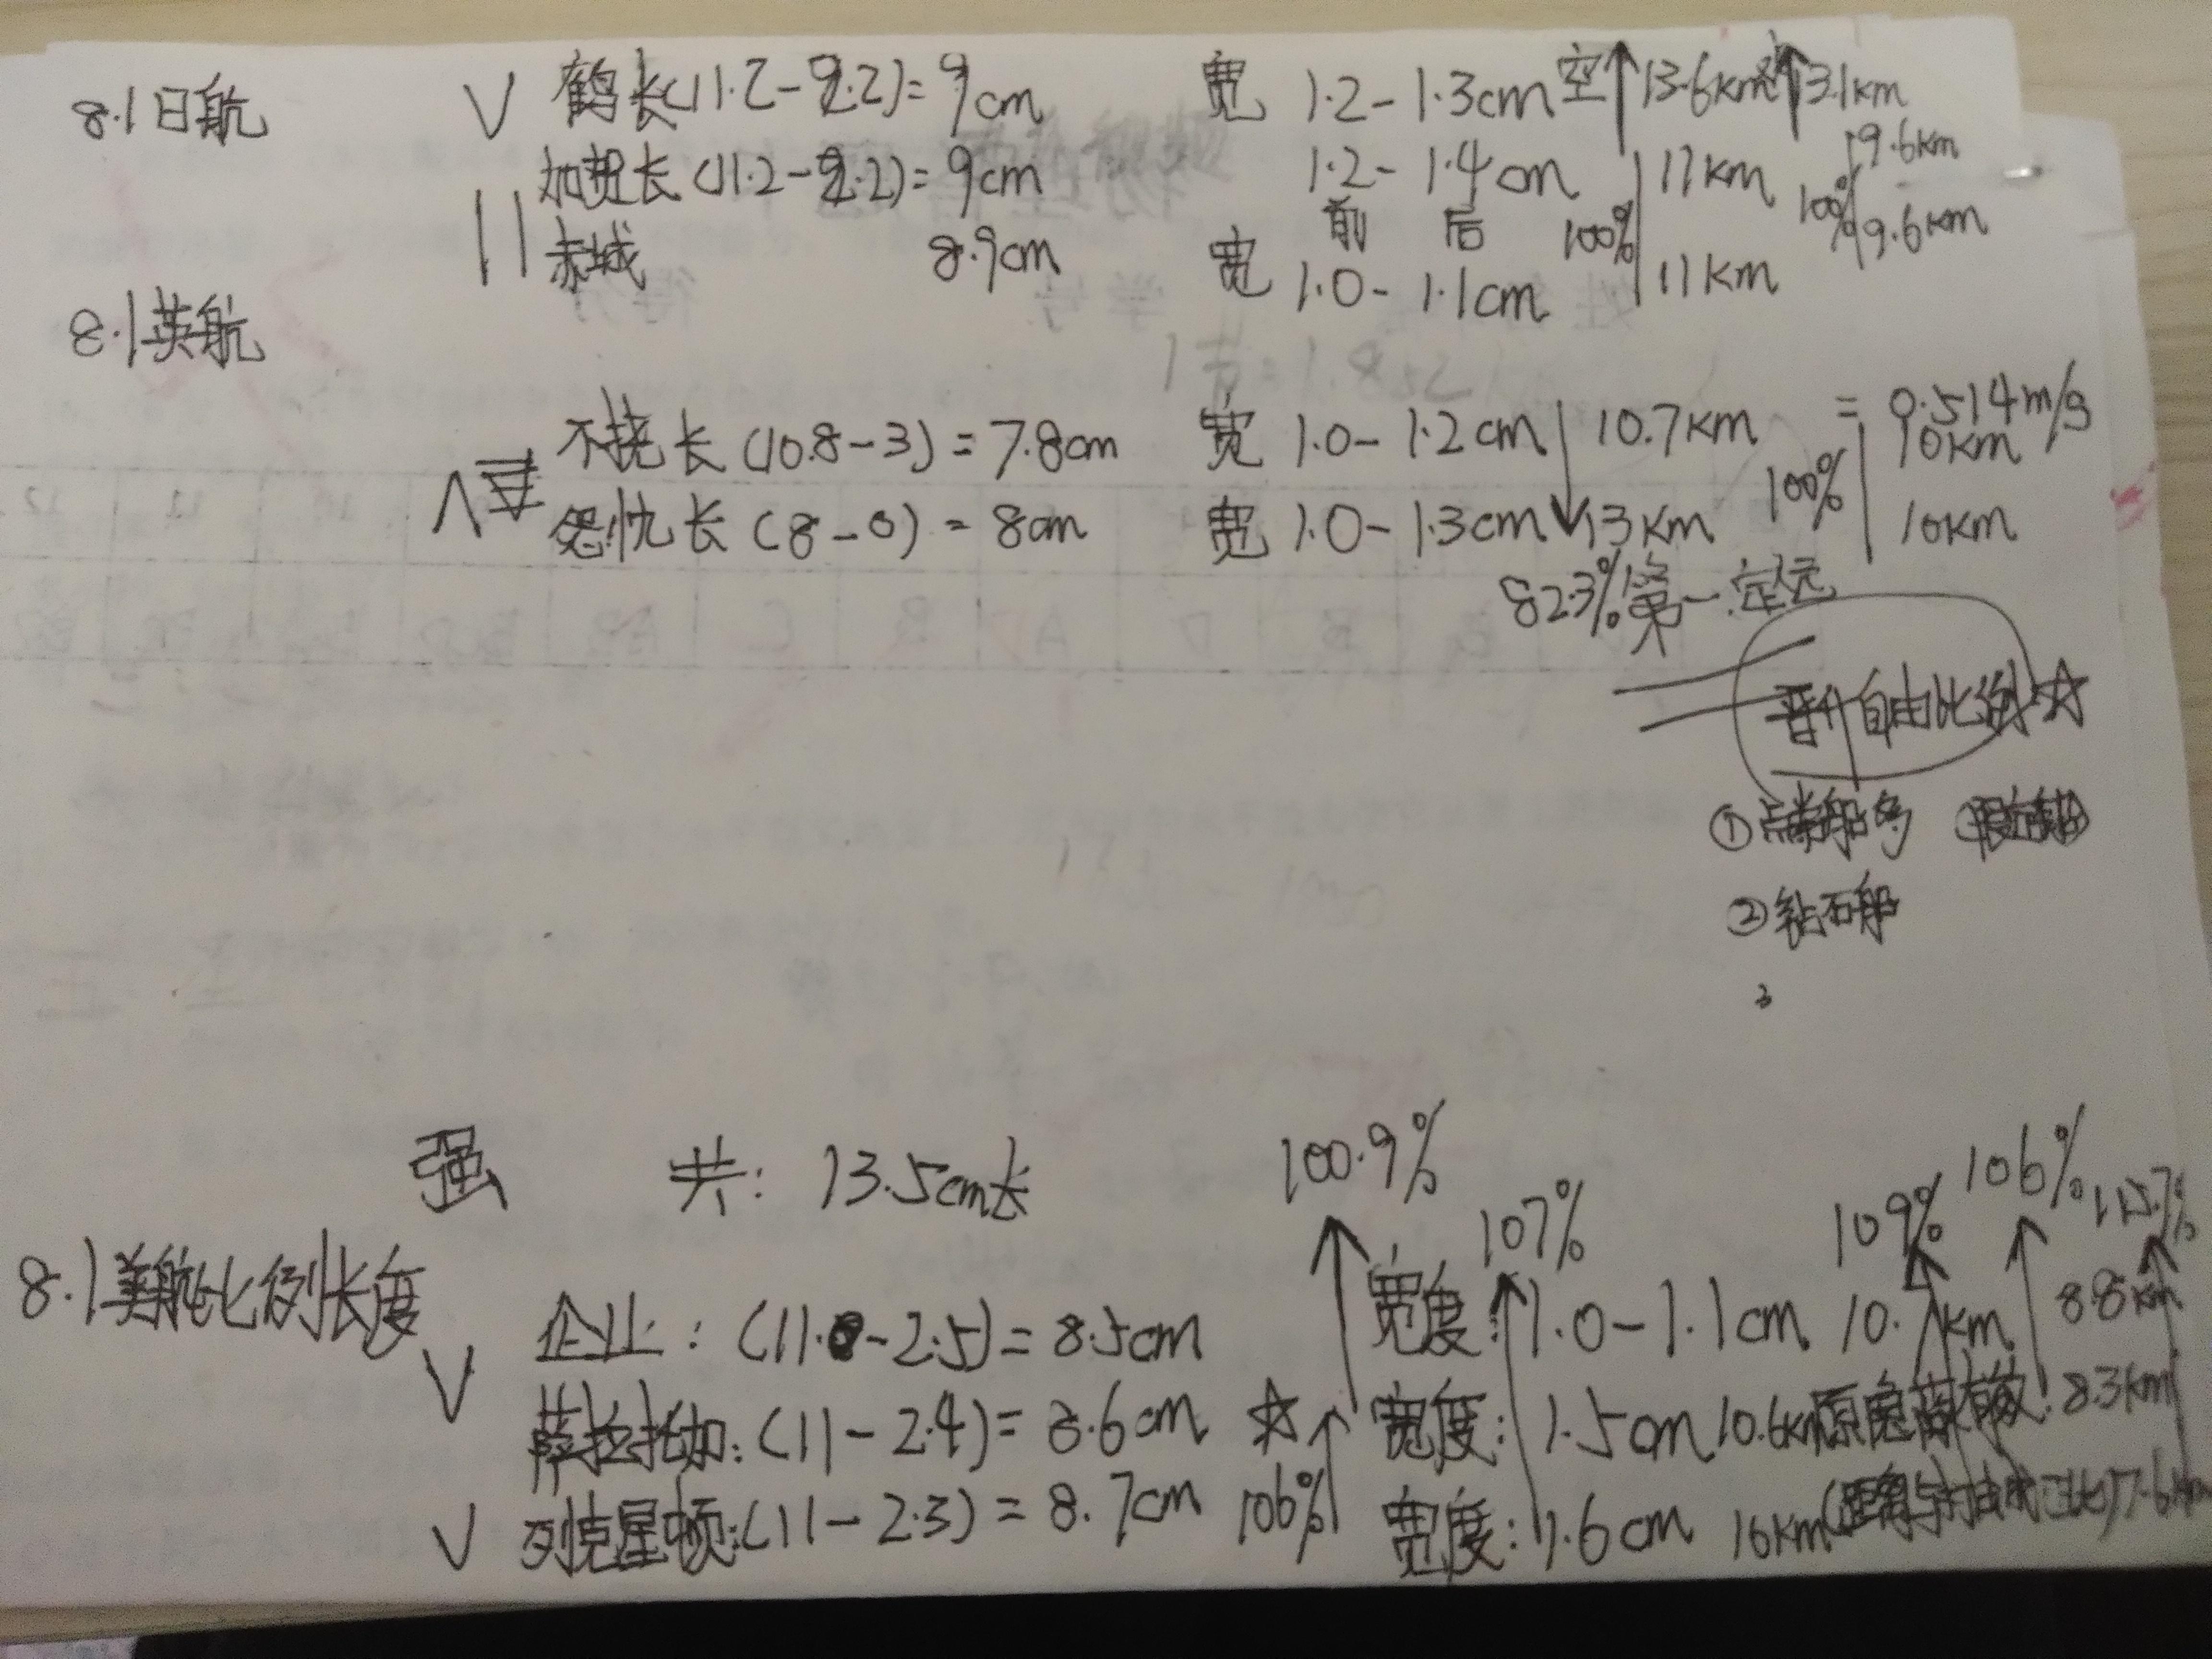 8.1日航 V 鹤长(11.2-2.2)=9cm 宽 1.2-1.3cm 空↑13.6km ↑13.1km
加贺长(11.2-2.2)=9cm 1.2-1.4cm 11km 19.6km
前 后 100% 100%
|| 赤城 8.9cm 宽 1.0-1.1cm 11km 19.6km
8.1英航
不挠长(10.8-3)=7.8cm 宽 1.0-1.2cm 10.7km = 0.514m/s
100% 10km
长(8-0)=8cm 宽 1.0-1.3cm 13km 10km
82.3% 第一定远
自由比例☆
①点类船
②钻石船
3
强 共: 13.5cm长 100.9% 107% 109% 106%
8.1美航比例长度
V 企业:(11.0-2.5)=8.5cm 宽度:1.0-1.1cm 10.7km 8.8km
萨拉托加:(11-2.4)=8.6cm ☆ 宽度:1.5cm 10.6km 8.3km
V 列克星顿:(11-2.3)=8.7cm 106% 宽度:1.6cm 16km 7.6km